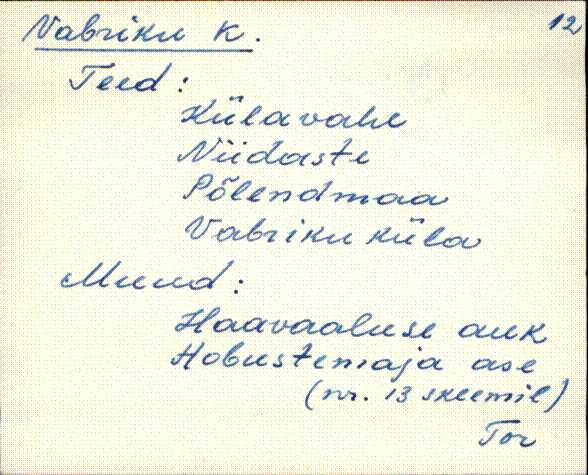 Vabriku k.
12
Teed:
Külavahe
Niidaste
Põlendmaa
Vabriku küla
Muud:
Haavaaluse auk
Hobustemaja ase
(nr. 13 skeemil)
Tor